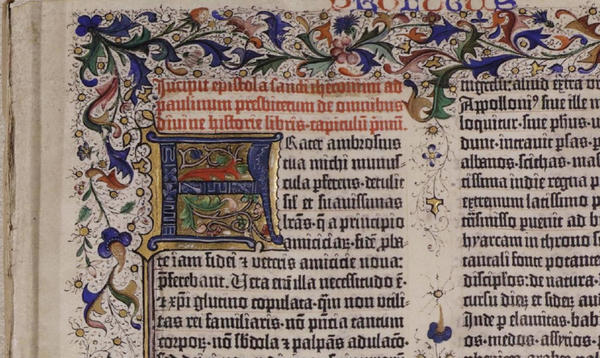 Incipit epistola sancti iheronimi ad
paulinum presbiterum de omnibus
diuine historie libris. capitulū pmū.
Frater ambrosius
tua michi munus⸗
cula pferens. detulit
sil et suauissimas
lrās. q̄ a principio
amiciciaꝝ. fidē pba⸗
te iam fidei & veteris amicicie noua:
pferebant. Vera em̄ illa necessitudo ē.
& xpi glutino copulata. qm̄ non vtili⸗
tas rei familiaris. nō pn̄cia tantum
corpoꝝ. nō sbdola & palpās adulacō.
Apolloniꝰ siue ille
loquitur. siue phūs.
dunt. intrauit psas.
albanos. scithas.
tissima indie regna
extremum latissimo
tāsmisso puenit ad
hyarcam in throno
tantali fonte potantem
discipulos: de natura.
cursu dieꝝ et sideꝝ
Inde p elamitas.
os. medos. assyrios.